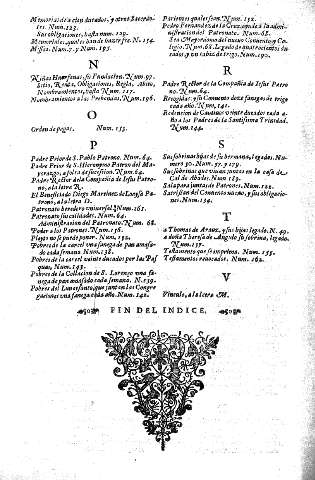 Memorias de a diez ducados, y otros Sacerdotes. Num. 123.
Sus obligaciones, hasta num. 129.
Memoriales, que se han de hazer fee. N. 154.
Missas. Num. 7. y Num. 195.
N
Niñas Huerfanas: su Fundacion. Num. 97.
Sitio, Renta, Obligaciones, Regla, Abito,
Nombramientos, hasta Num. 117.
Nombramientos a las Prebendas. Num. 196.
O
Orden de pagas. Num. 153.
P
Padre Prior de S. Pablo Patrono. Num. 64.
Padre Prior de S. Hieronymo Patron del Mayorazgo, a falta de sucession. Num. 64.
Padre Rector de la Compañia de Iesus Patrono, a la letra R.
El Beneficiado Diego Martinez de Loaysa Patrono, a la letra D.
Patronato heredero universal. Num. 161.
Patronato sus calidades. Num. 64.
Administracion del Patronato. Num. 68.
Poder a los Patronos. Num. 156.
Pleyto no se puede poner. Num. 152.
Pobres de la carcel una fanega de pan amasado cada semana. Num. 138.
Pobres de la carcel veinte ducados por las Pasquas, Num. 143.
Pobres de la Collacion de S. Lorenço una fanega de pan amasado cada semana. N. 139.
Pobres del Iuvesanto, que junten los Congregaciones una fanega cada año. Num. 142.
Parientes quales son. Num. 152.
Pedro Fernandez de la Cruz, ponele a la administracion del Patronato. Num. 68.
Sea Mayordomo del nuevo Convento y Colegio, Num. 68. Legado de quatrocientos ducados, y un cahiz de trigo. Num. 190.
R
Padre Rector de la Compañia de Iesus Patrono. Num. 64.
Recogidas: y su Convento doze fanegas de trigo cada año. Num. 141.
Redencion de Cautivos veinte ducados cada año a los Padres de la Santissima Trinidad. Num. 144.
S
Sus sobrinas hijas de su hermana, legados, Numero 30. Num. 57. y 179.
Sus sobrinas que vivan juntas en la casa de Cal de Abades. Num. 189.
Sala para juntas de Patronos. Num. 122.
Sacristan del Convento nuevo, y sus obligaciones. Num. 134.
T
a Thomas de Araux, y sus hijos legado. N. 49.
a doña Theresa de Angulo su sobrina, legado. Num. 137.
Testamento que se imprima. Num. 155.
Testamentos revocados. Num. 162.
V
Vinculo, a la letra M.
FIN DEL INDICE.